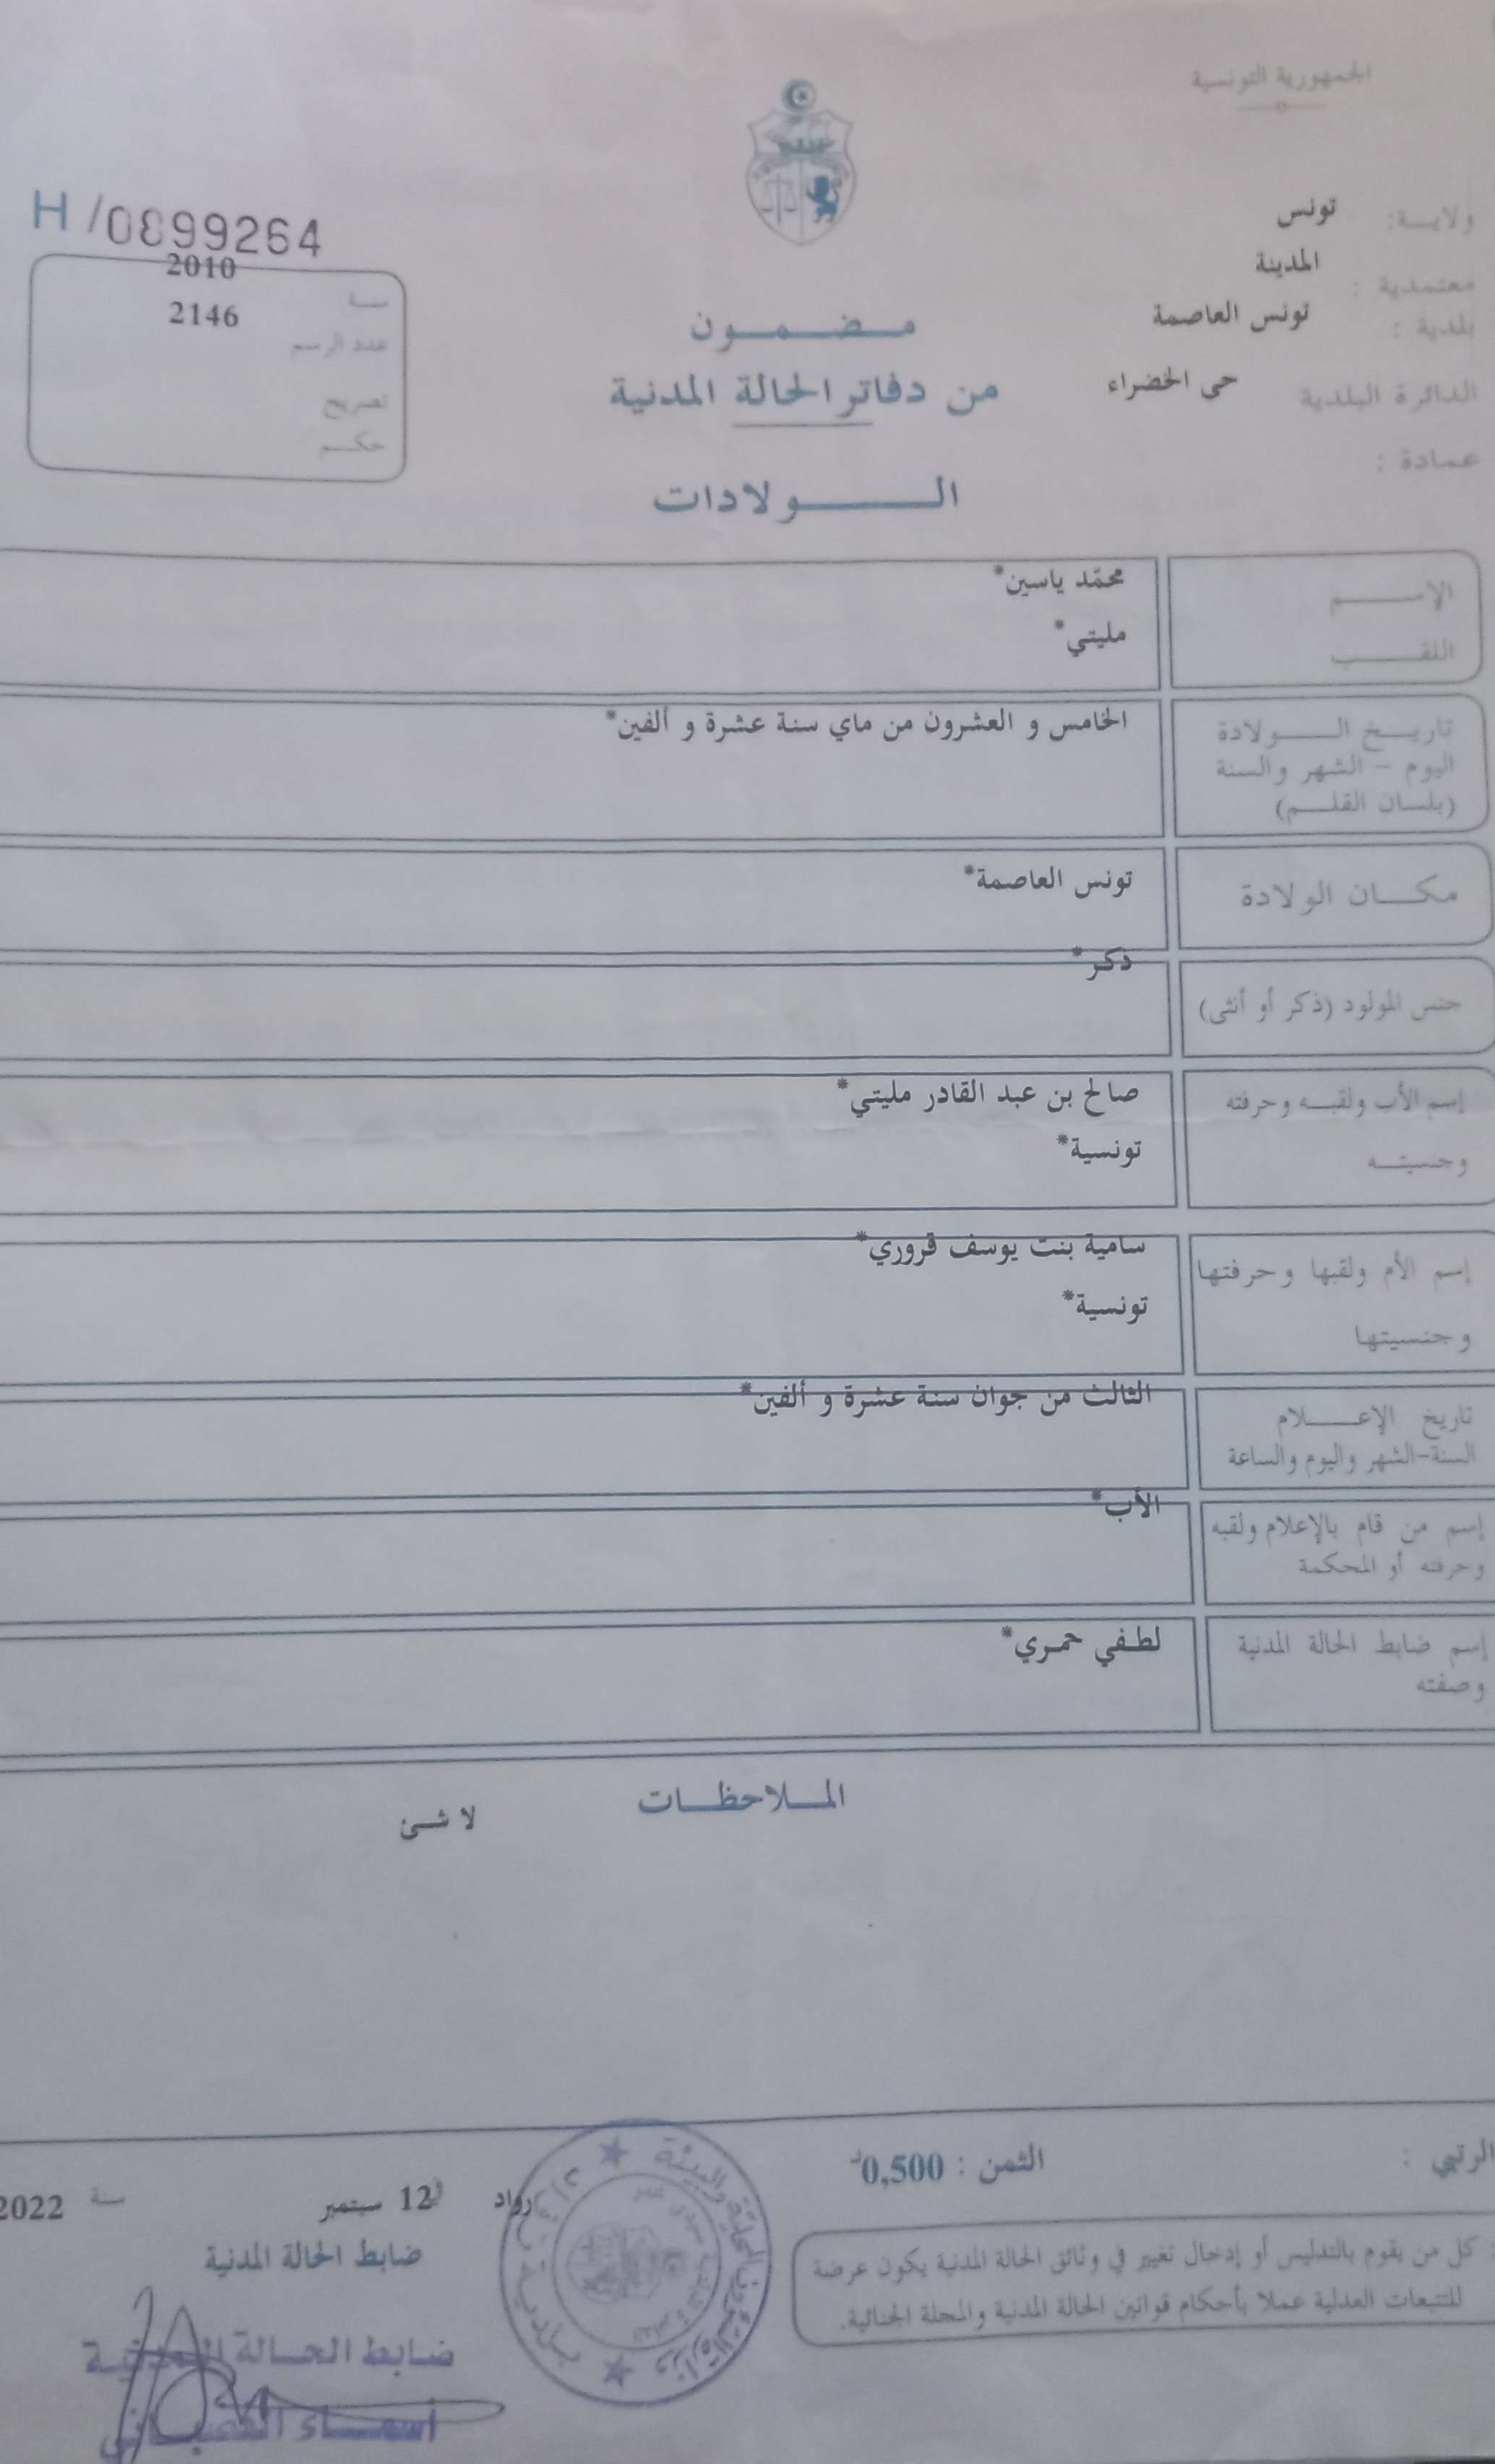 الجمهورية التونسية
ولايـــة: تونس
معتمدية : المدينة
بلدية : تونس العاصمة
الدائرة البلدية حى الخضراء
عمادة :
H /0899264
سنة 2010
عدد الرسم 2146
تصريح
حكم
مضمون
من دفاتر الحالة المدنية
الولادات
الإسم محمّد ياسين*
اللقب مليتي*
تاريخ الولادة الخامس و العشرون من ماي سنة عشرة و ألفين*
اليوم - الشهر والسنة
(بلسان القلم)
مكان الولادة تونس العاصمة*
جنس المولود (ذكر أو أنثى) ذكر*
إسم الأب ولقبه وحرفته صالح بن عبد القادر مليتي*
وجنسيته تونسية*
إسم الأم ولقبها وحرفتها سامية بنت يوسف قروري*
وجنسيتها تونسية*
تاريخ الإعلام الثالث من جوان سنة عشرة و ألفين*
السنة-الشهر واليوم والساعة
إسم من قام بالإعلام ولقبه الأب*
وحرفته أو المحكمة
إسم ضابط الحالة المدنية لطفي حمري*
وصفته
الملاحظات
لا شئ
الرتبي :
الثمن : 0,500د
رواد في 12 سبتمبر سنة 2022
ضابط الحالة المدنية
كل من يقوم بالتدليس أو إدخال تغيير في وثائق الحالة المدنية يكون عرضة
للتتبعات العدلية عملا بأحكام قوانين الحالة المدنية والمجلة الجنائية.
ضابط الحالة المدنية
أسماء
بلدية رواد